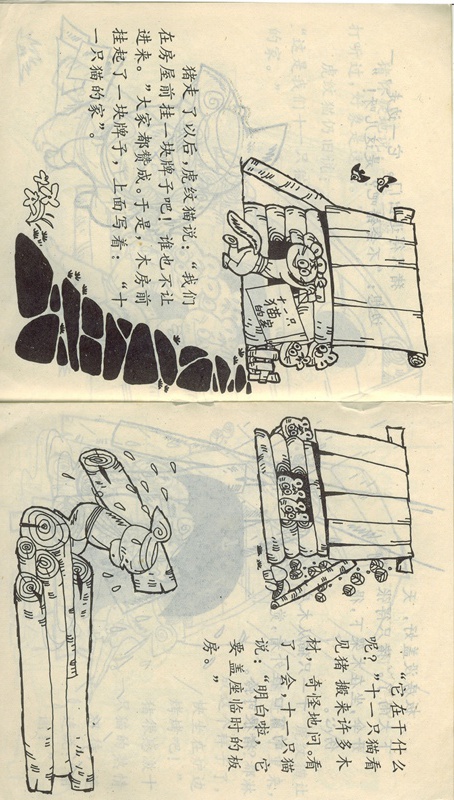 猪走了以后，虎纹猫说：“我们
在房屋前挂一块牌子吧！谁也不让
进来。”大家都赞成。于是，木房前
挂起了一块牌子，上面写着：“十
一只猫的家”。
十一只
猫的家
“它在干什么
呢？”十一只猫看
见猪搬来许多木
材，奇怪地问。看
了一会，十一只猫
说：“明白啦，它
要盖座临时的板
房。”